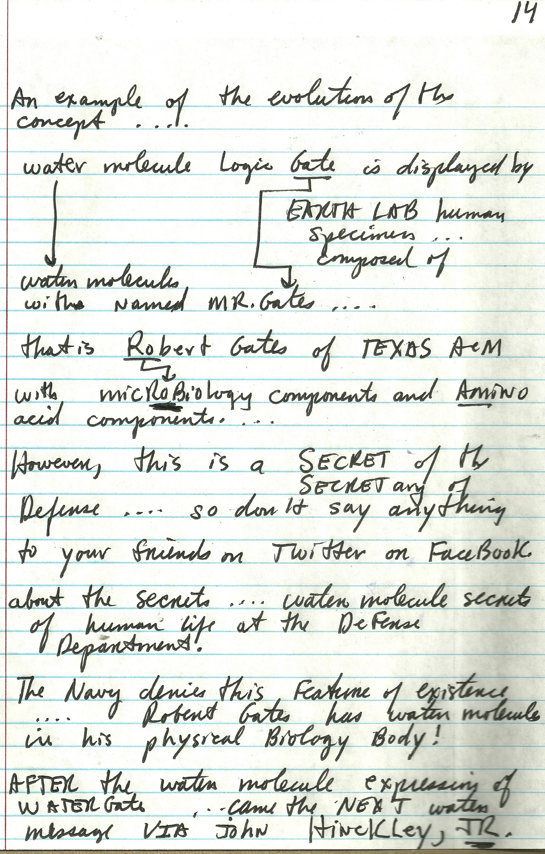 14
An example of the evolution of the
concept .....
water molecule Logic Gate is displayed by
EARTH LAB human
specimen ...
composed of
water molecules
with Named MR. Gates ....
that is Robert Gates of TEXAS A&M
with micROBiology components and Amino
acid components. ....
However, this is a SECRET of the
SECRETary of
Defense .... so don't say anything
to your friends on Twitter or FaceBook
about the secrets .... water molecule secrets
of human life at the Defense
Department!
The Navy denies this Feature of existence
.... Robert Gates has water molecule
in his physical Biology Body!
AFTER the water molecule expressing of
WATERGate ....came the NEXT water
message VIA John Hinckley, JR.